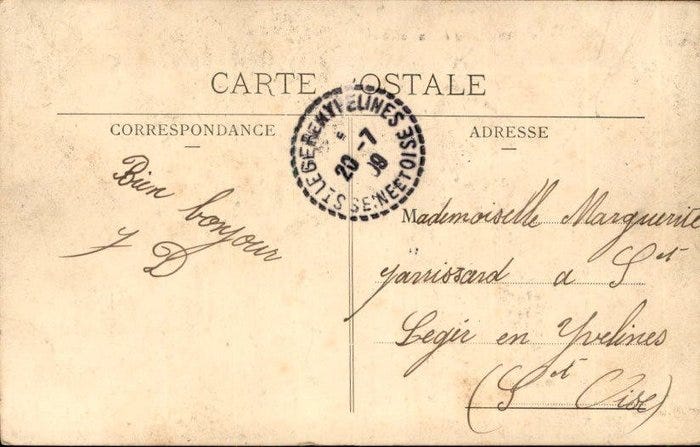 CARTE POSTALE
CORRESPONDANCE
ADRESSE
ST LEGER EN YVELINES
SEINE ET OISE
20 -7
09
Bien bonjour
Y D
Mademoiselle Marguerite
à St
Leger en Yvelines
(St Oise)